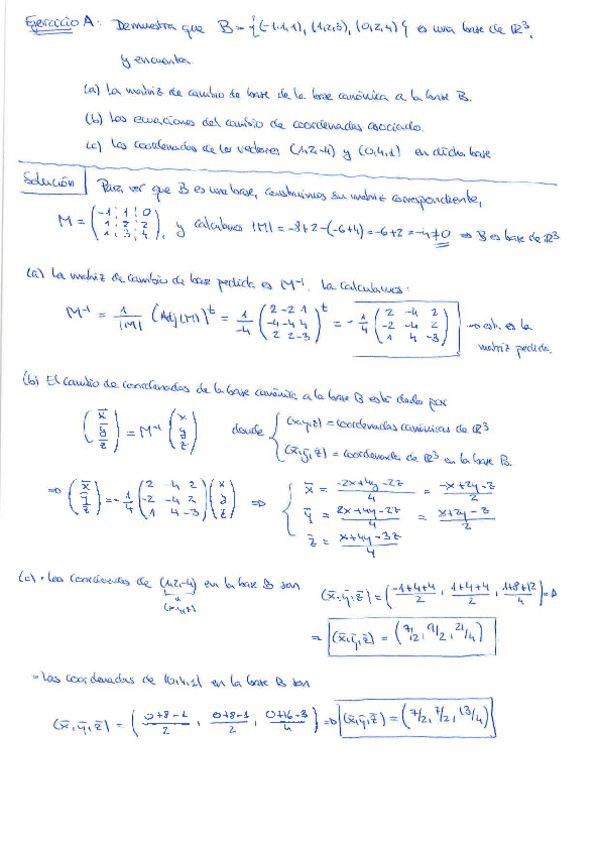 Ejercicio A: Demuestra que B = {(-1,1,1), (1,2,3), (0,2,4)} es una base de ℝ³,
y encuentra
(a) La matriz de cambio de base de la base canónica a la base B.
(b) Las ecuaciones del cambio de coordenadas asociado.
(c) Las coordenadas de los vectores (1,2,-4) y (0,4,1) en dicha base
Solución Para ver que B es una base, construimos su matriz correspondiente,
M = (-1 1 0; 1 2 2; 1 3 4), y calculamos |M| = -8+2-(-6+4) = -6+2 = -4 ≠ 0 ⇒ B es base de ℝ³
(a) La matriz de cambio de base pedida es M⁻¹. La calculamos:
M⁻¹ = 1/|M| (Adj(M))ᵗ = 1/-4 (2 -2 1; -4 -4 4; 2 2 -3)ᵗ = -1/4 (2 -4 2; -2 -4 2; 1 4 -3) → esta es la
matriz pedida.
(b) El cambio de coordenadas de la base canónica a la base B está dado por
(x̄; ȳ; z̄) = M⁻¹ (x; y; z) donde { (x,y,z) = coordenadas canónicas de ℝ³
(x̄,ȳ,z̄) = coordenadas de ℝ³ en la base B.
⇒ (x̄; ȳ; z̄) = -1/4 (2 -4 2; -2 -4 2; 1 4 -3) (x; y; z) ⇒ { x̄ = -2x+4y-2z/4 = -x+2y-z/2
ȳ = 2x+4y-2z/4 = x+2y-z/2
z̄ = x+4y-3z/4
(c) · Las coordenadas de (1,2,-4) en la base B son (x̄,ȳ,z̄) = (-1+4+4/2, 1+4+4/2, 1+8+12/4) ⇒
(x,y,z)
⇒ (x̄,ȳ,z̄) = (7/2, 9/2, 21/4)
· Las coordenadas de (0,4,1) en la base B son
(x̄,ȳ,z̄) = (0+8-1/2, 0+8-1/2, 0+16-3/4) ⇒ (x̄,ȳ,z̄) = (7/2, 7/2, 13/4)